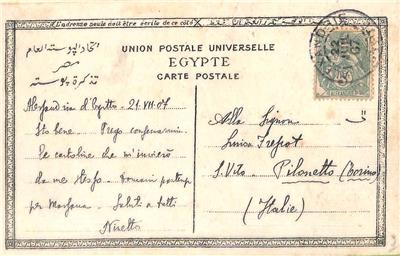 L'adresse seule doit être écrite de ce côté
اتحاد البوسته العام
مصر
تذكرة بوسته
UNION POSTALE UNIVERSELLE
EGYPTE
CARTE POSTALE
Alessandria d'Egitto - 21.VII.07
Sto bene. Prego conservarmi
le cartoline che m'invierò
da me stesso. Domani partenza
per Massaua. Saluti a tutti
Ninetto
Alla Signora
Luisa
S. Vito Pilonetto (Torino)
(Italie)